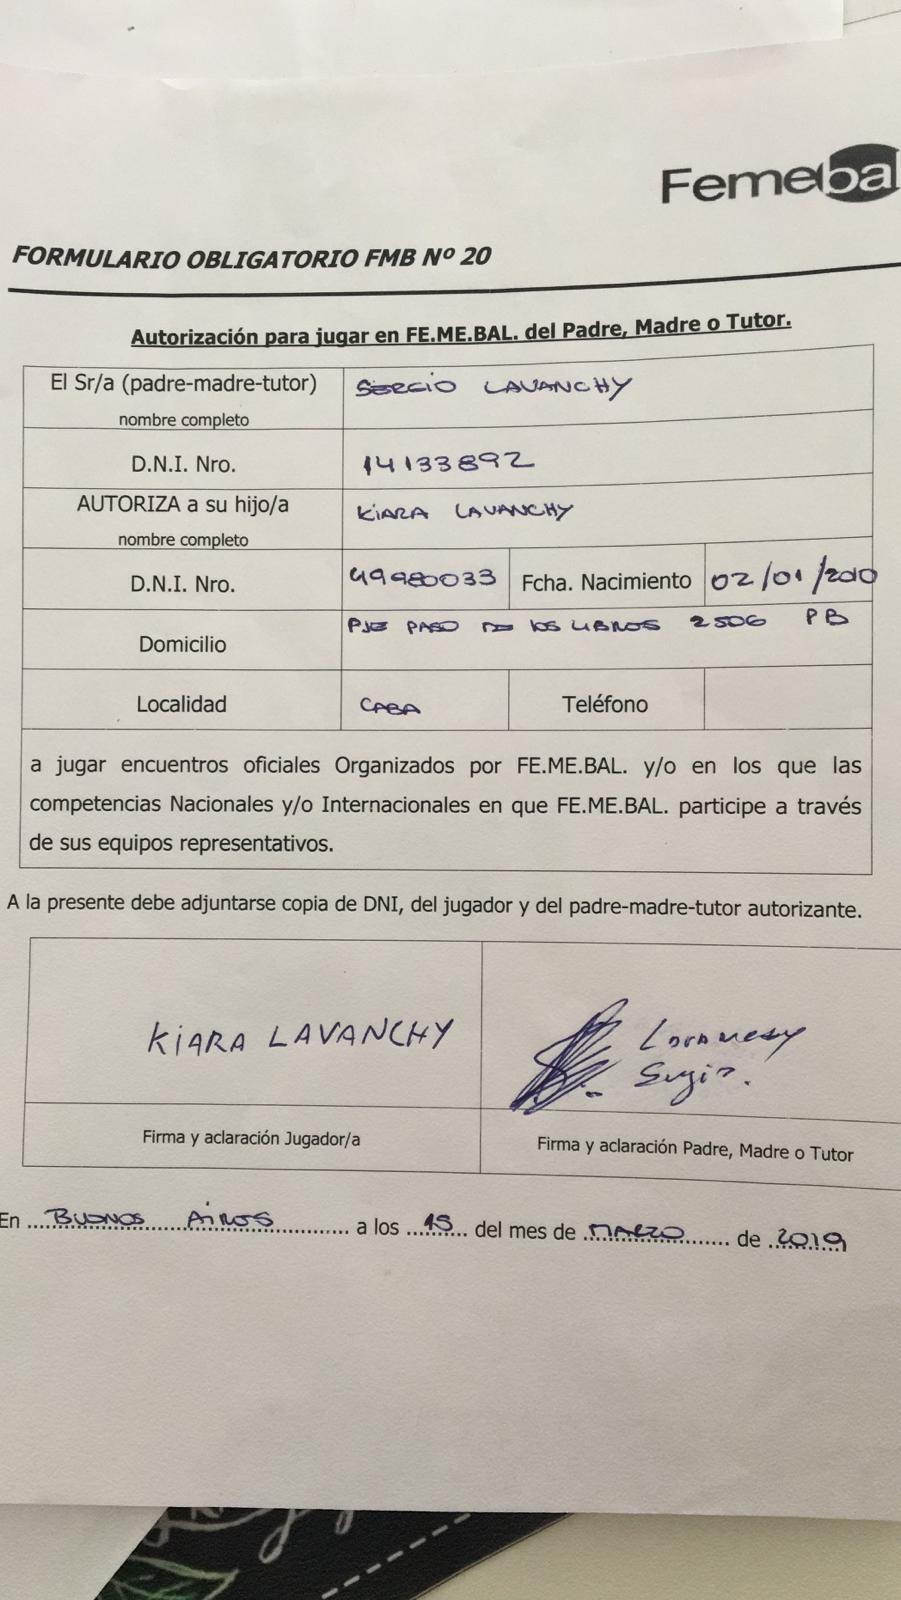 Femebal
FORMULARIO OBLIGATORIO FMB Nº 20
Autorización para jugar en FE.ME.BAL. del Padre, Madre o Tutor.
El Sr/a (padre-madre-tutor) nombre completo SERGIO LAVANCHY
D.N.I. Nro. 14133892
AUTORIZA a su hijo/a nombre completo KIARA LAVANCHY
D.N.I. Nro. 49980033 Fcha. Nacimiento 02/01/2010
Domicilio PJE PASO DE LOS LIBROS 2506 PB
Localidad CABA Teléfono
a jugar encuentros oficiales Organizados por FE.ME.BAL. y/o en los que las
competencias Nacionales y/o Internacionales en que FE.ME.BAL. participe a través
de sus equipos representativos.
A la presente debe adjuntarse copia de DNI, del jugador y del padre-madre-tutor autorizante.
KIARA LAVANCHY
Lavanchy
Sergio.
Firma y aclaración Jugador/a
Firma y aclaración Padre, Madre o Tutor
En BUENOS AIRES a los 15 del mes de MARZO de 2019